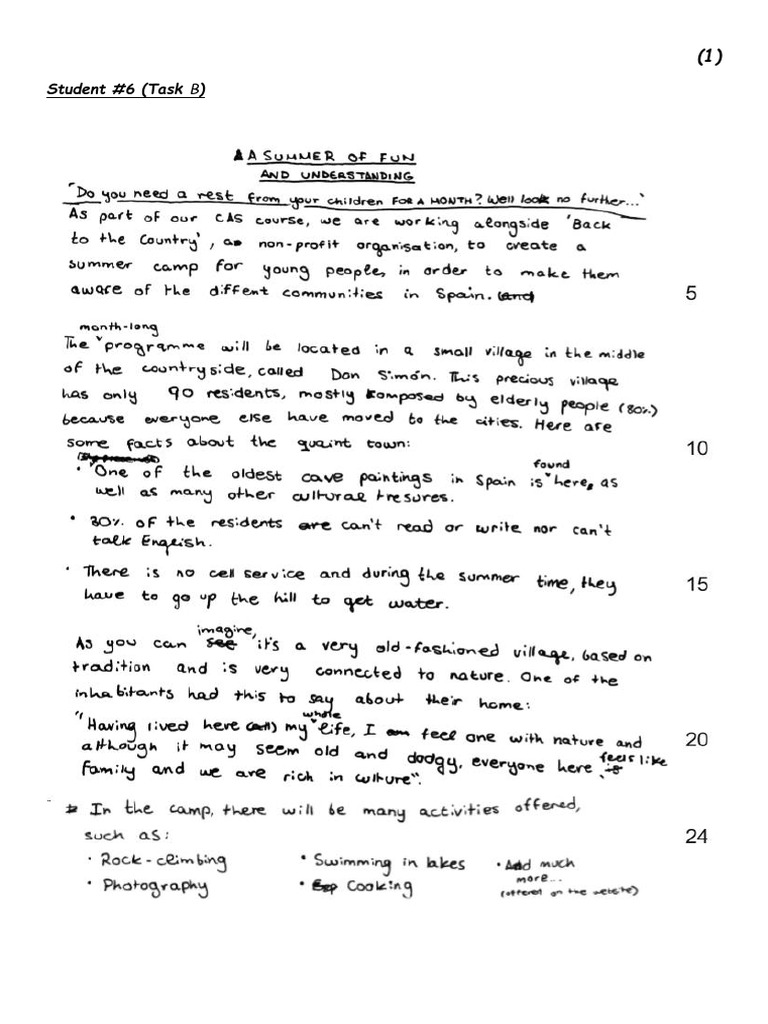 (1)
Student #6 (Task B)
A SUMMER OF FUN
AND UNDERSTANDING
"Do you need a rest from your children FOR A MONTH? Well look no further..."
As part of our CAS course, we are working alongside 'Back
to the Country', a non-profit organisation, to create a
summer camp for young people, in order to make them
aware of the diffent communities in Spain. (and)
5
month-long
The programme will be located in a small village in the middle
of the countryside, called Don Simón. This precious village
has only 90 residents, mostly composed by elderly people (80%)
because everyone else have moved to the cities. Here are
some facts about the quaint town:
10
found
• One of the oldest cave paintings in Spain is here, as
well as many other cultural tresures.
• 30% of the residents are can't read or write nor can't
talk English.
• There is no cell service and during the summer time, they
15
have to go up the hill to get water.
imagine,
As you can see it's a very old-fashioned village, based on
tradition and is very connected to nature. One of the
inhabitants had this to say about their home:
whole
"Having lived here (all) my life, I am feel one with nature and
20
although it may seem old and dodgy, everyone here is feels like
family and we are rich in culture".
In the camp, there will be many activities offered,
such as:
24
• Rock-climbing • Swimming in lakes • And much
more...
• Photography • Cooking (offered on the website)